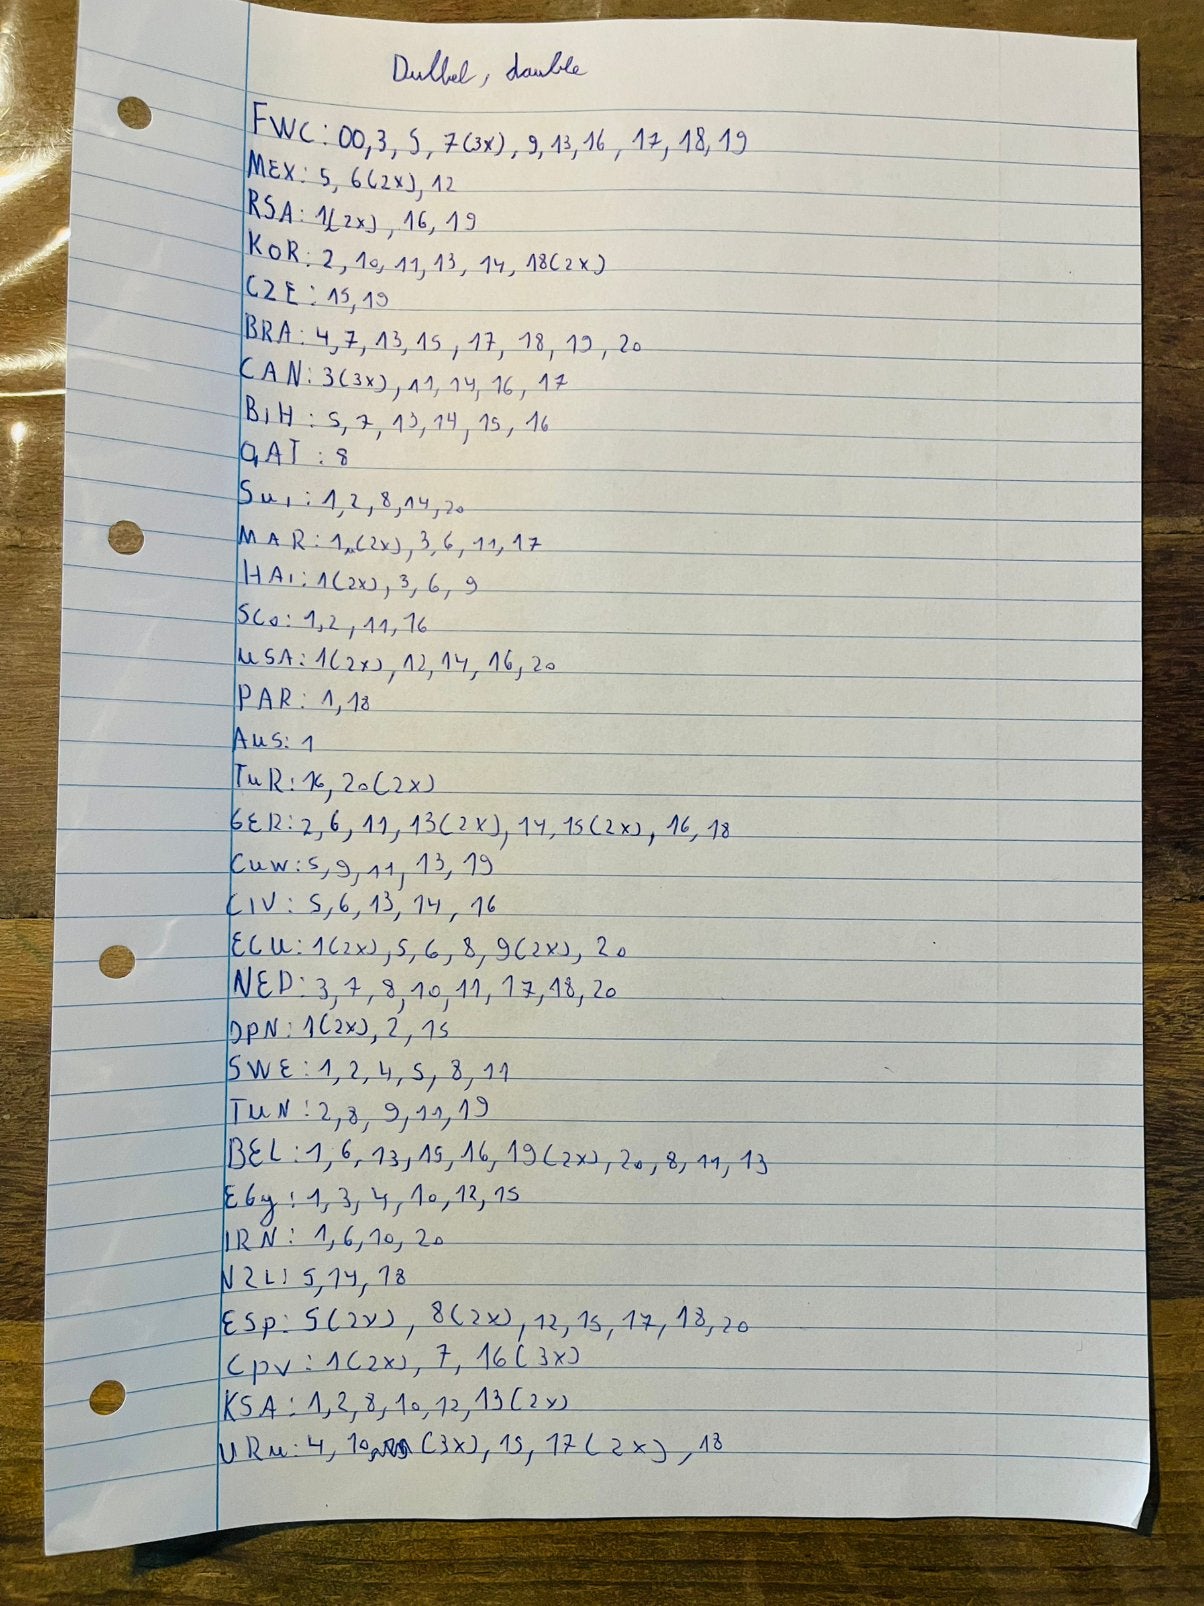 Dubbel, double
FWC: 00, 3, 5, 7(3x), 9, 13, 16, 17, 18, 19
MEX: 5, 6(2x), 12
RSA: 1(2x), 16, 19
KOR: 2, 10, 11, 13, 14, 18(2x)
CZE: 15, 19
BRA: 4, 7, 13, 15, 17, 18, 19, 20
CAN: 3(3x), 11, 14, 16, 17
BiH: 5, 7, 13, 14, 15, 16
QAT: 8
Sui: 1, 2, 8, 14, 20
MAR: 1, (2x), 3, 6, 11, 17
HAi: 1(2x), 3, 6, 9
SCo: 1, 2, 11, 16
USA: 1(2x), 12, 14, 16, 20
PAR: 1, 18
Aus: 1
TuR: 16, 20(2x)
GER: 2, 6, 11, 13(2x), 14, 15(2x), 16, 18
Cuw: 5, 9, 11, 13, 19
CIV: 5, 6, 13, 14, 16
ECU: 1(2x), 5, 6, 8, 9(2x), 20
NED: 3, 7, 8, 10, 11, 17, 18, 20
JPN: 1(2x), 2, 15
SWE: 1, 2, 4, 5, 8, 11
TUN: 2, 8, 9, 11, 19
BEL: 1, 6, 13, 15, 16, 19(2x), 20, 8, 11, 13
EGy: 1, 3, 4, 10, 12, 15
IRN: 1, 6, 10, 20
NZL: 5, 14, 18
ESp: 5(2x), 8(2x), 12, 15, 17, 18, 20
Cpv: 1(2x), 7, 16(3x)
KSA: 1, 2, 8, 10, 12, 13(2x)
URu: 4, 10, (3x), 15, 17(2x), 18